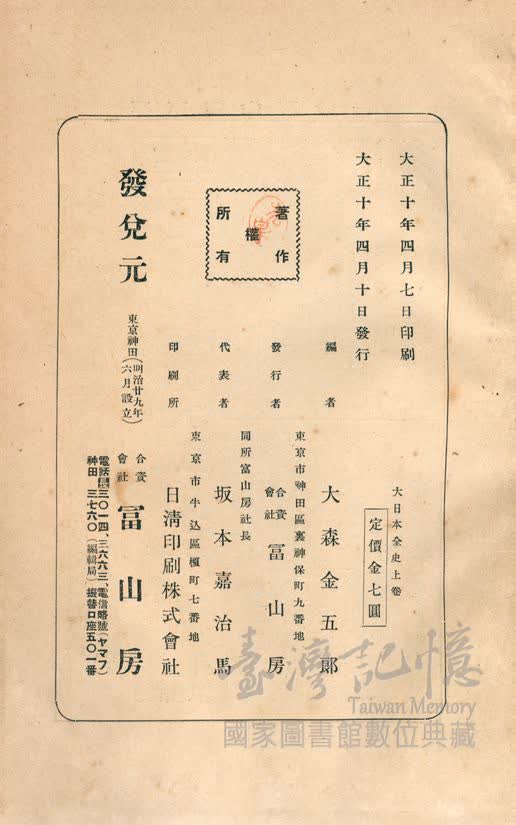 大正十年四月七日印刷
大正十年四月十日發行
著作權所有
大日本全史上卷
定價金七圓
編者
大森金五郎
東京市神田區裏神保町九番地
發行者
合資會社
冨山房
同所富山房社長
代表者
坂本嘉治馬
東京市牛込區榎町七番地
印刷所
日淸印刷株式會社
發兌元
東京神田(明治廿九年六月設立)
合資會社
冨山房
電話長三〇一四、三六六三、電信略號(ヤマフ)
神田 三七六〇(編輯局)振替口座五〇一番
臺灣記憶
Taiwan Memory
國家圖書館數位典藏